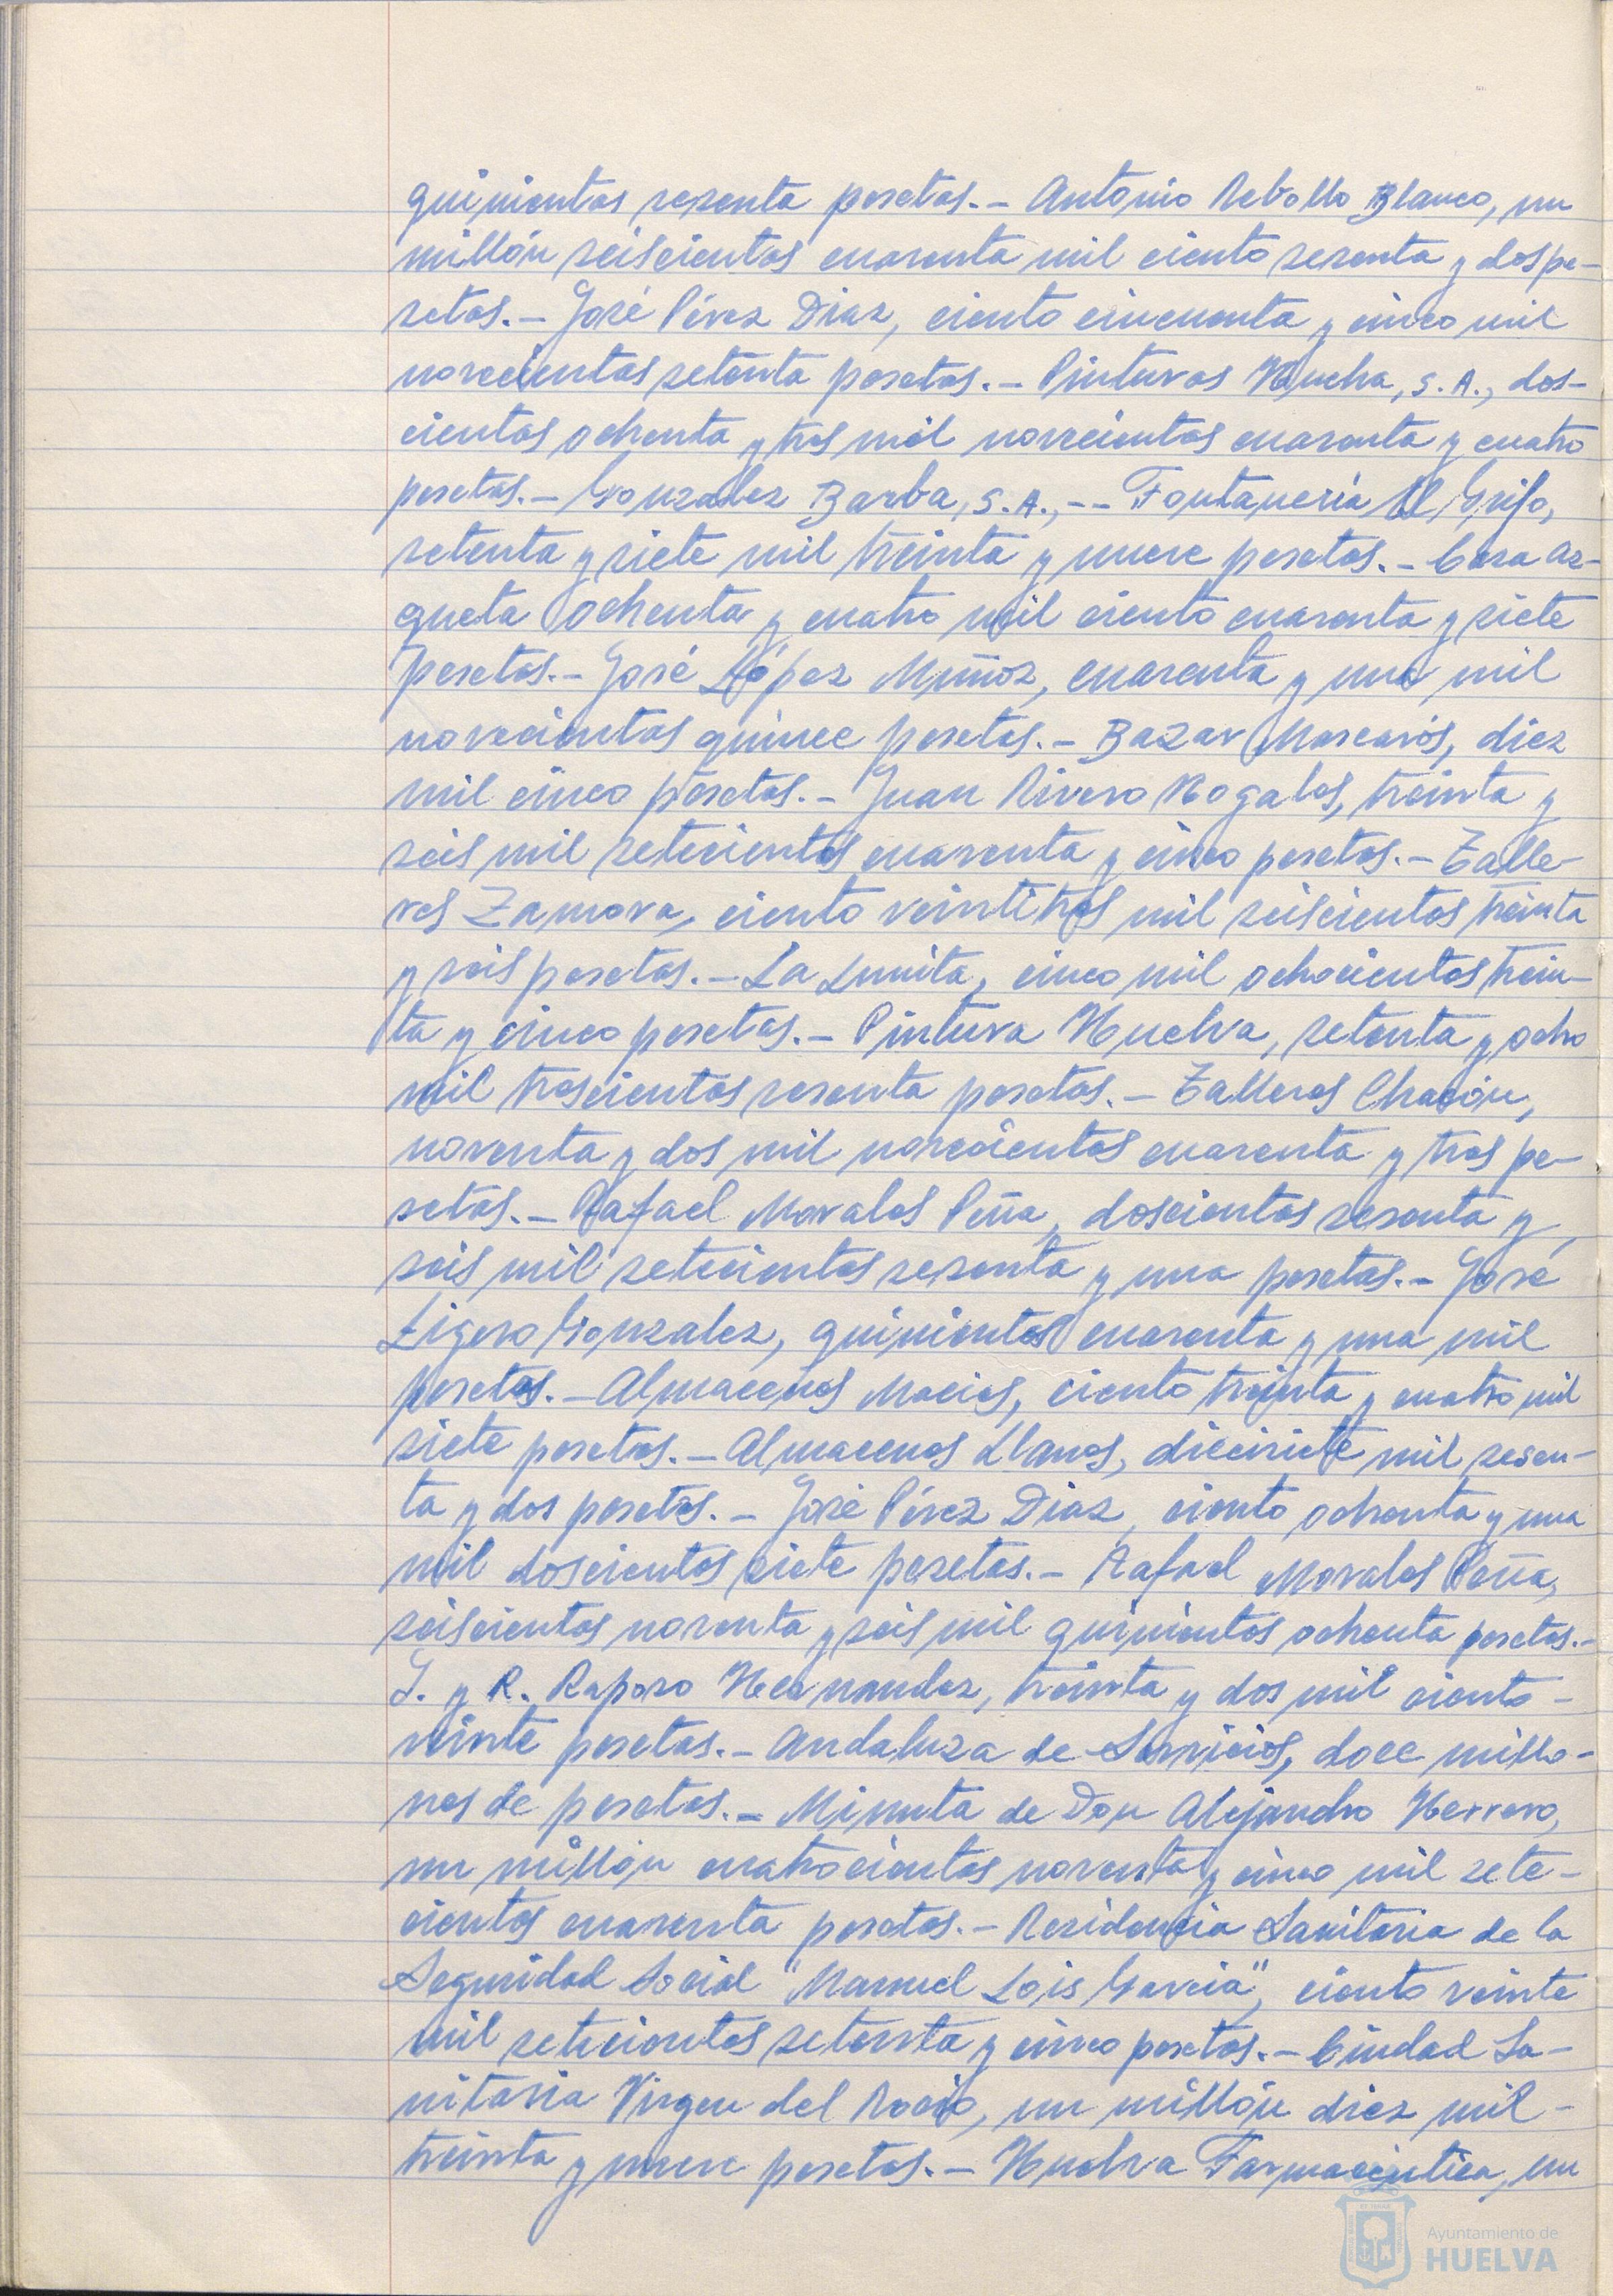 quinientas sesenta pesetas.- Antonio Rebollo Blanco, un
millón seiscientas cuarenta mil ciento sesenta y dos pe-
setas.- José Pérez Diaz, ciento cincuenta y cinco mil
novecientas setenta pesetas.- Pinturas Huelva, S.A., dos-
cientas ochenta y tres mil novecientas cuarenta y cuatro
pesetas.- Gonzalez Barba, S.A.,-- Fontanería El Grifo,
setenta y siete mil treinta y nueve pesetas.- Casa Ar-
queta ochenta y cuatro mil ciento cuarenta y siete
pesetas.- José López Muñoz, cuarenta y una mil
novecientas quince pesetas.- Bazar Mascarós, diez
mil cinco pesetas.- Juan Rivero Nogales, treinta y
seis mil setecientas cuarenta y cinco pesetas.- Talle-
res Zamora, ciento veintitres mil seiscientas treinta
y seis pesetas.- La Lunita, cinco mil ochocientas trein-
ta y cinco pesetas.- Pintura Huelva, setenta y ocho
mil trescientas sesenta pesetas.- Talleres Chacón,
noventa y dos mil novecientas cuarenta y tres pe-
setas.- Rafael Morales Peña, doscientas sesenta y
seis mil setecientas sesenta y una pesetas.- José
Ligero Gonzalez, quinientas cuarenta y una mil
pesetas.- Almacenes Macias, ciento treinta y cuatro mil
siete pesetas.- Almacenes Llanos, diecisiete mil sesen-
ta y dos pesetas.- José Pérez Diaz, ciento ochenta y una
mil doscientas siete pesetas.- Rafael Morales Peña,
seiscientas noventa y seis mil quinientas ochenta pesetas.-
J. y R. Raposo Hernandez, treinta y dos mil ciento-
veinte pesetas.- Andaluza de Servicios, doce millo-
nes de pesetas.- Minuta de Don Alejandro Herrero,
un millón cuatrocientas noventa y cinco mil sete-
cientas cuarenta pesetas.- Residencia Sanitaria de la
Seguridad Social "Manuel Lois García", ciento veinte
mil setecientas setenta y cinco pesetas.- Ciudad Sa-
nitaria Virgen del Rocío, un millón diez mil-
treinta y nueve pesetas.- Huelva Farmacéutica, un
Ayuntamiento de
HUELVA